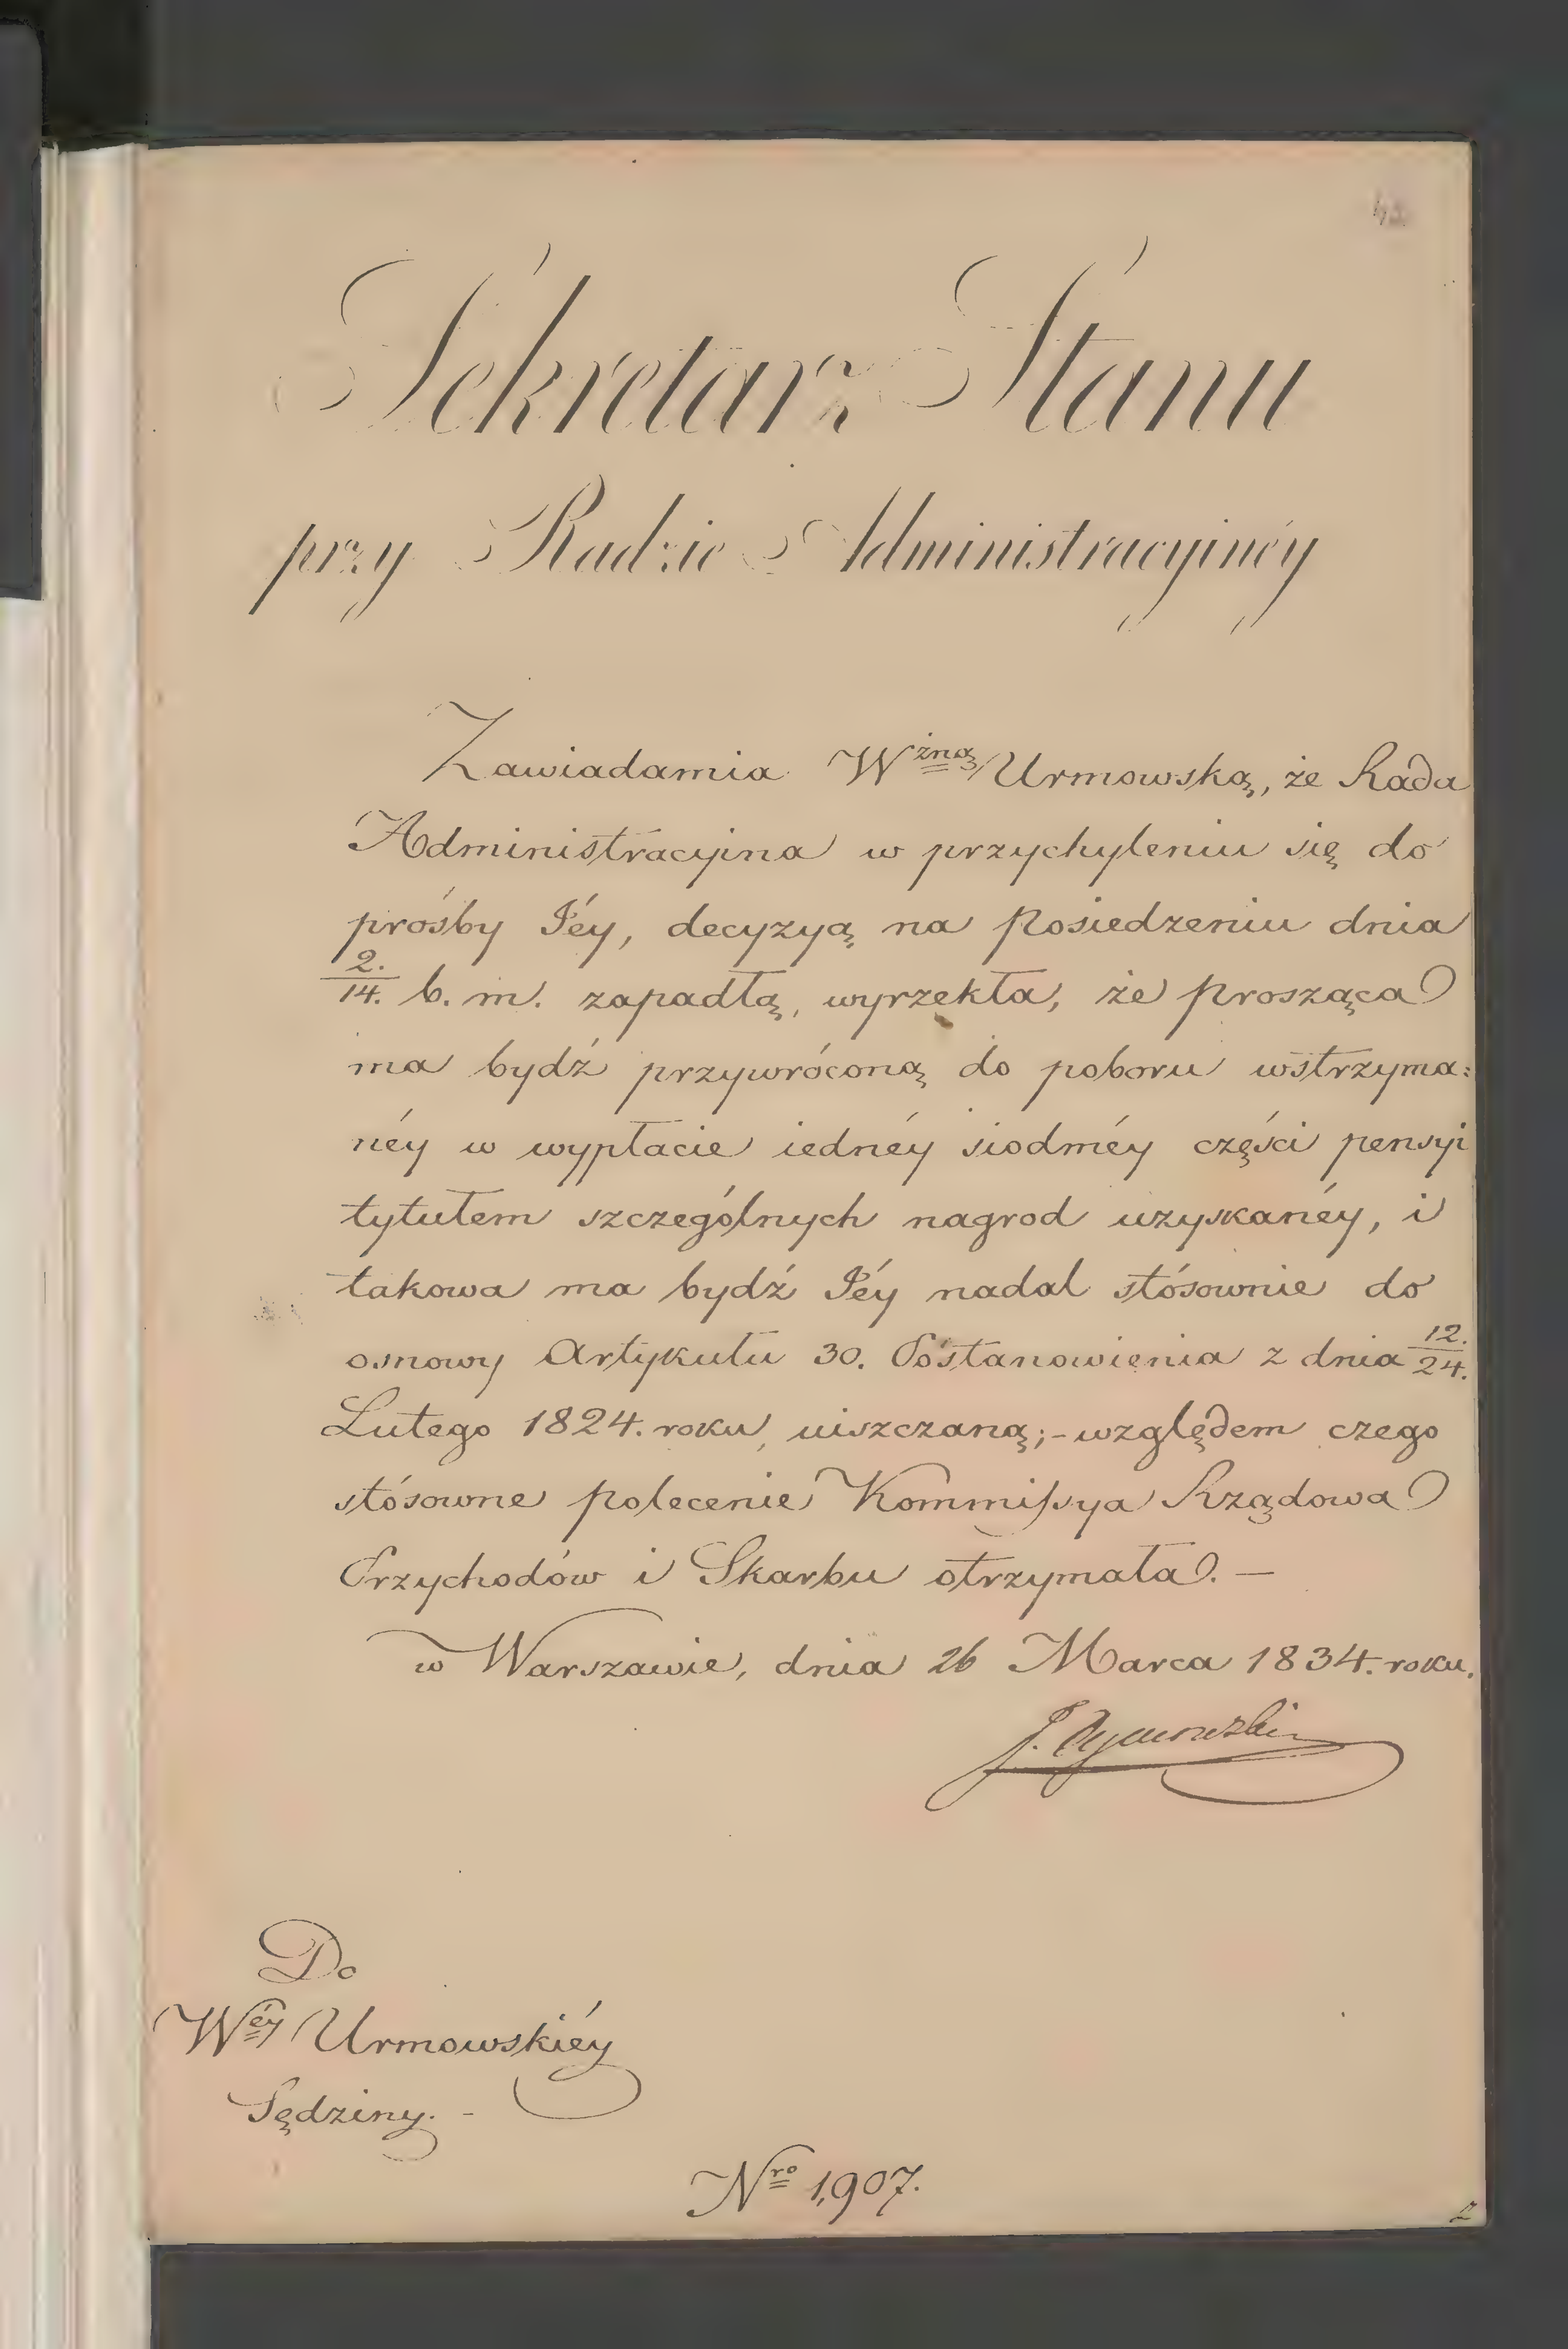 42
Sekretarz Stanu
przy Radzie Administracyinéy
Zawiadamia Wżną Urmowską, że Rada
Administracyina w przychyleniu się do
prośby Jéy, decyzyą na Posiedzeniu dnia
2./14. b. m. zapadłą, wyrzekła, że prosząca
ma bydź przywróconą do poboru wstrzyma:
néy w wypłacie iednéy siodméy części pensyi
tytułem szczególnych nagrod uzyskanéy, i
takowa ma bydź Jéy nadal stósownie do
osnowy Artykułu 30. Postanowienia z dnia 12./24.
Lutego 1824. roku, uiszczaną;- względem czego
stósowne polecenie Kommissya Rządowa
Przychodów i Skarbu otrzymała. —
w Warszawie, dnia 26 Marca 1834. roku.
J. Tymowski
Do
Wéy Urmowskiéy
Sędziny. -
Nro 1,907.
2